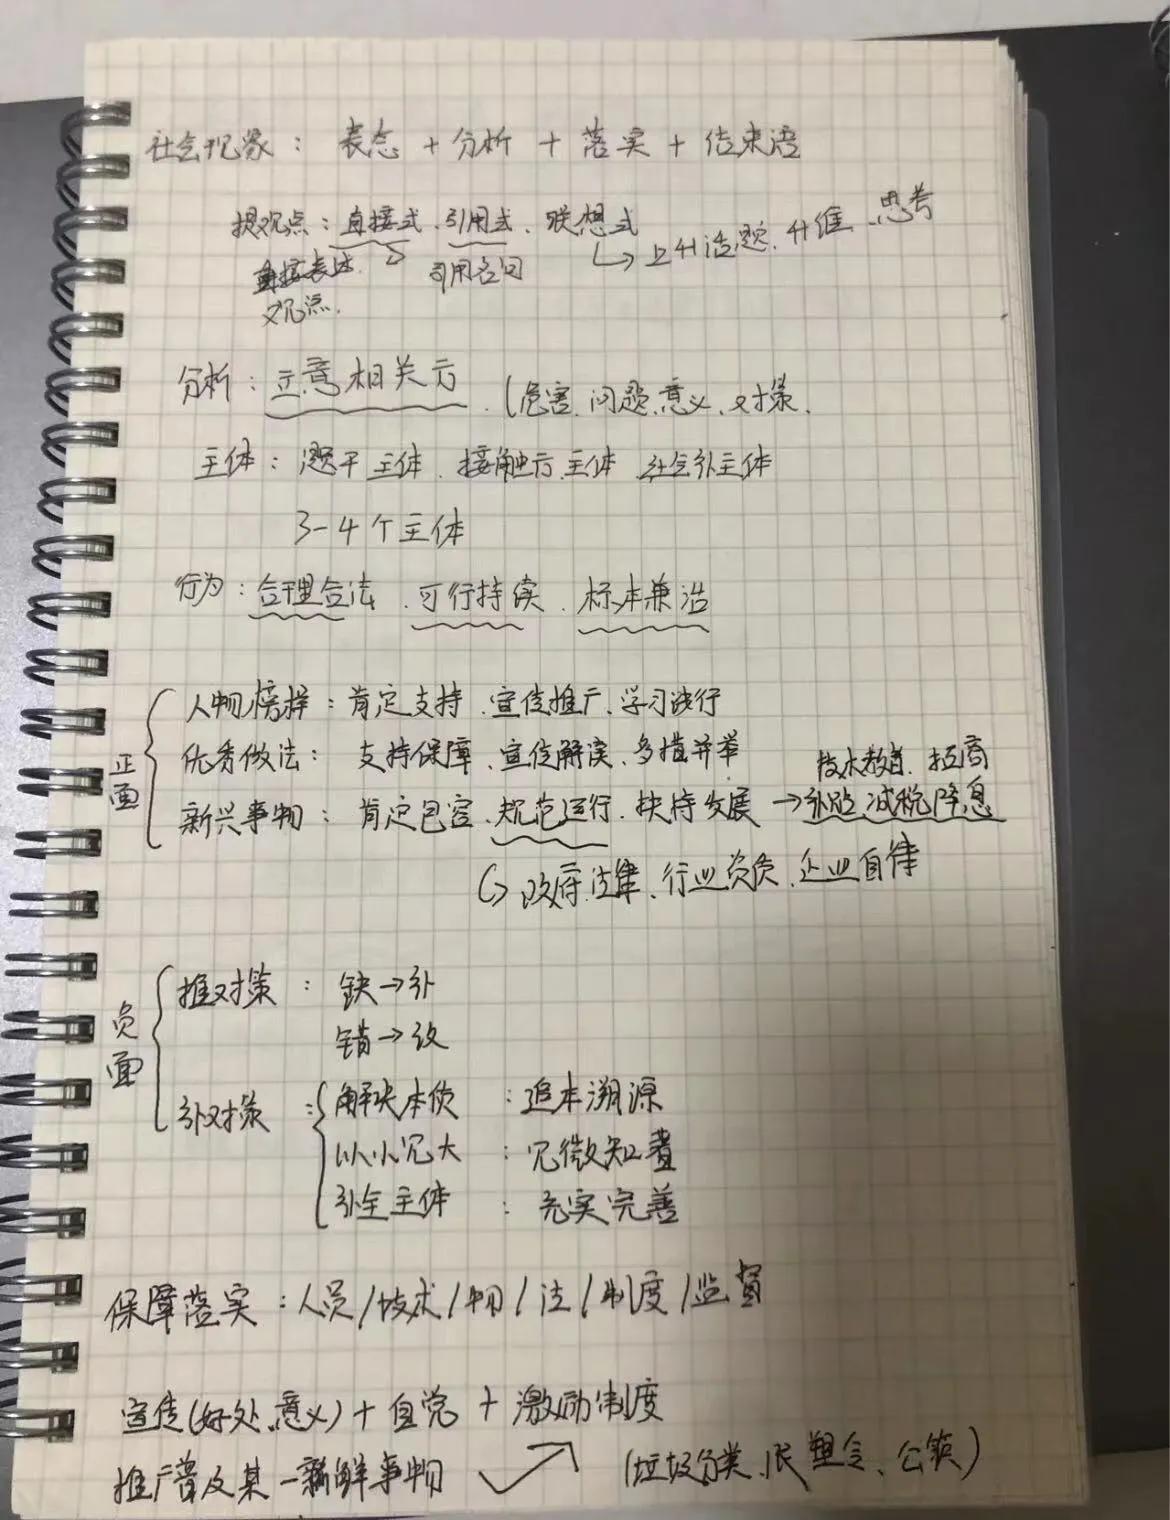 社会现象：表态＋分析＋落实＋结束语
提观点：直接式、引用式、联想式 ↳上升话题、升维、思考
直接表述 引用名句
观点.
分析：注意相关方.（危害、问题、意义、对策、
主体：题干主体、接触方主体 社会外主体
3-4个主体
行为：合理合法、可行持续、标本兼治
正面
人物榜样：肯定支持、宣传推广、学习践行
优秀做法：支持保障、宣传解读、多措并举
技术教育、招商
新兴事物：肯定包容、规范运行、扶持发展→补贴、减税降息
↳政府法律、行业资质、企业自律
负面
推对策：缺→补
错→改
补对策：
解决本质：追本溯源
以小见大：见微知著
补全主体：充实完善
保障落实：人员/技术/物/法/制度/监督
宣传(好处、意义)＋自觉＋激励制度
推广普及某一新鲜事物 (垃圾分类、限塑令、公筷)